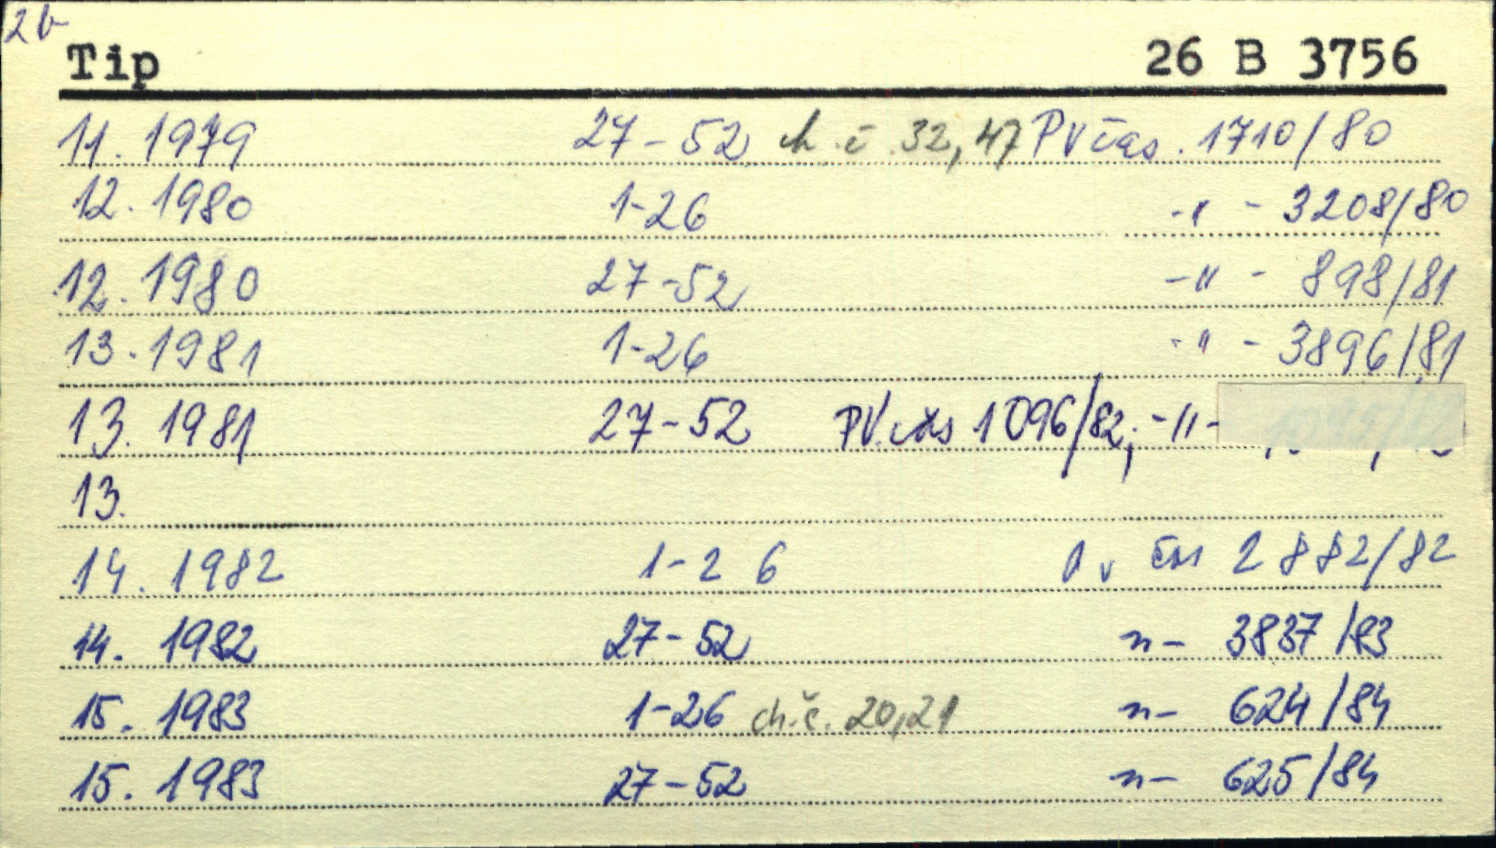 2b
Tip 26 B 3756
11. 1979 27-52 ch. č. 32, 47 PV čas. 1710/80
12. 1980 1-26 -"- 3208/80
12. 1980 27-52 -"- 898/81
13. 1981 1-26 -"- 3896/81
13. 1981 27-52 PV. čas 1096/82; -"-
13.
14. 1982 1-26 Pv čas 2882/82
14. 1982 27-52 -"- 3837/83
15. 1983 1-26 ch. č. 20,21 -"- 624/84
15. 1983 27-52 -"- 625/84